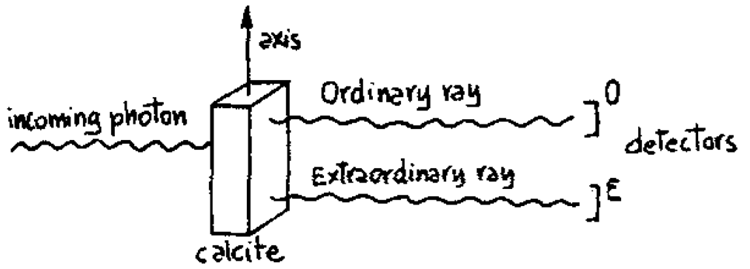 axis
incoming photon
Ordinary ray
O
detectors
Extraordinary ray
E
calcite